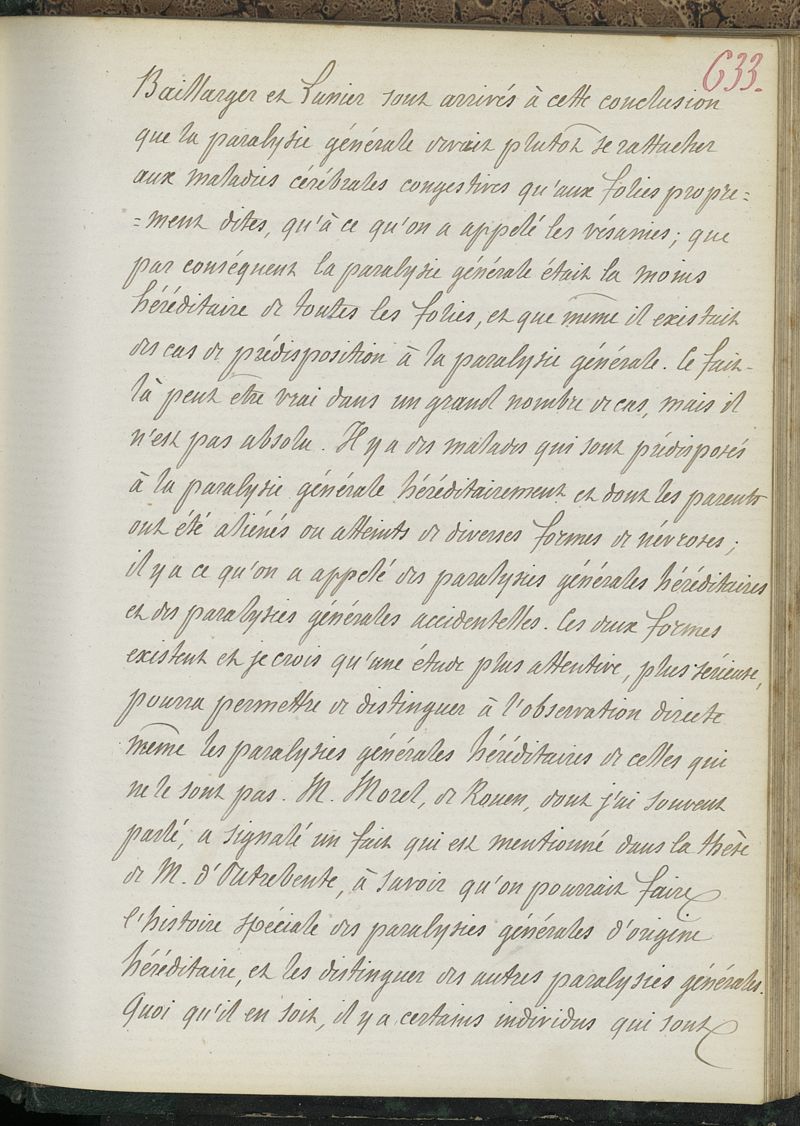 633.
Baillarger et Lunier sont arrivés à cette conclusion
que la paralysie générale devait plutôt se rattacher
aux maladies cérébrales congestives qu'aux folies propre=
=ment dites, qu'à ce qu'on a appelé les vésanies; que
par conséquent la paralysie générale était la moins
héréditaire de toutes les folies, et que même il existait
des cas de prédisposition à la paralysie générale. Ce fait-
là peut être vrai dans un grand nombre de cas, mais il
n'est pas absolu. Il y a des malades qui sont prédisposés
à la paralysie générale héréditairement et dont les parents
ont été aliénés ou atteints de diverses formes de névroses;
il y a ce qu'on a appelé des paralysies générales héréditaires
et des paralysies générales accidentelles. Ces deux formes
existent et je crois qu'une étude plus attentive, plus sérieuse,
pourra permettre de distinguer à l'observation directe
même les paralysies générales héréditaires de celles qui
ne le sont pas. M. Morel, de Rouen, dont j'ai souvent
parlé, a signalé un fait qui est mentionné dans la thèse
de M. d'Outrebente, à savoir qu'on pourrait faire
l'histoire spéciale des paralysies générales d'origine
héréditaire, et les distinguer des autres paralysies générales.
Quoi qu'il en soit, il y a certains individus qui sont